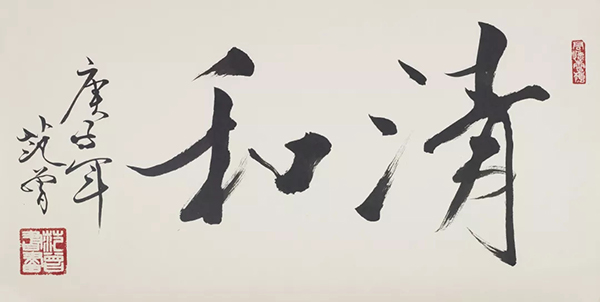 清和
庚子年
范曾